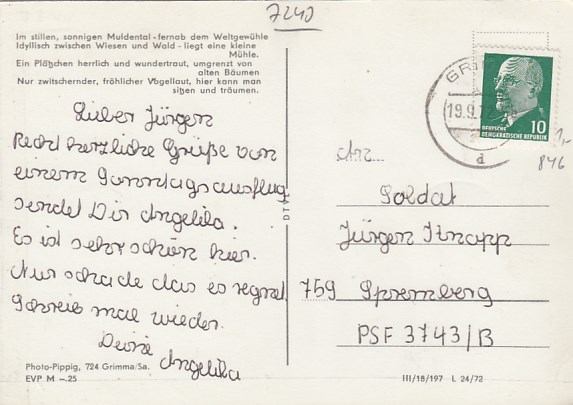 7240
Im stillen, sonnigen Muldental - fernab dem Weltgewühle
Idyllisch zwischen Wiesen und Wald - liegt eine kleine
Mühle.
Ein Plätzchen herrlich und wundertraut, umgrenzt von
alten Bäumen
Nur zwitschernder, fröhlicher Vogellaut, hier kann man
sitzen und träumen.
Lieber Jürgen
Recht herzliche Grüße von
einem Sonntagsausflug
sendet Dir Angelika.
Es ist sehr schön hier.
Nur schade das es regnet.
Schreib mal wieder.
Deine
Angelika
Photo-Pippig, 724 Grimma/Sa.
EVP M -.25
GRI
19.9.72
a
DEUTSCHE
DEMOKRATISCHE REPUBLIK
10
1,-
846
An
Soldat
Jürgen Knapp
759 Spremberg
PSF 3743/B
III/18/197 L 24/72